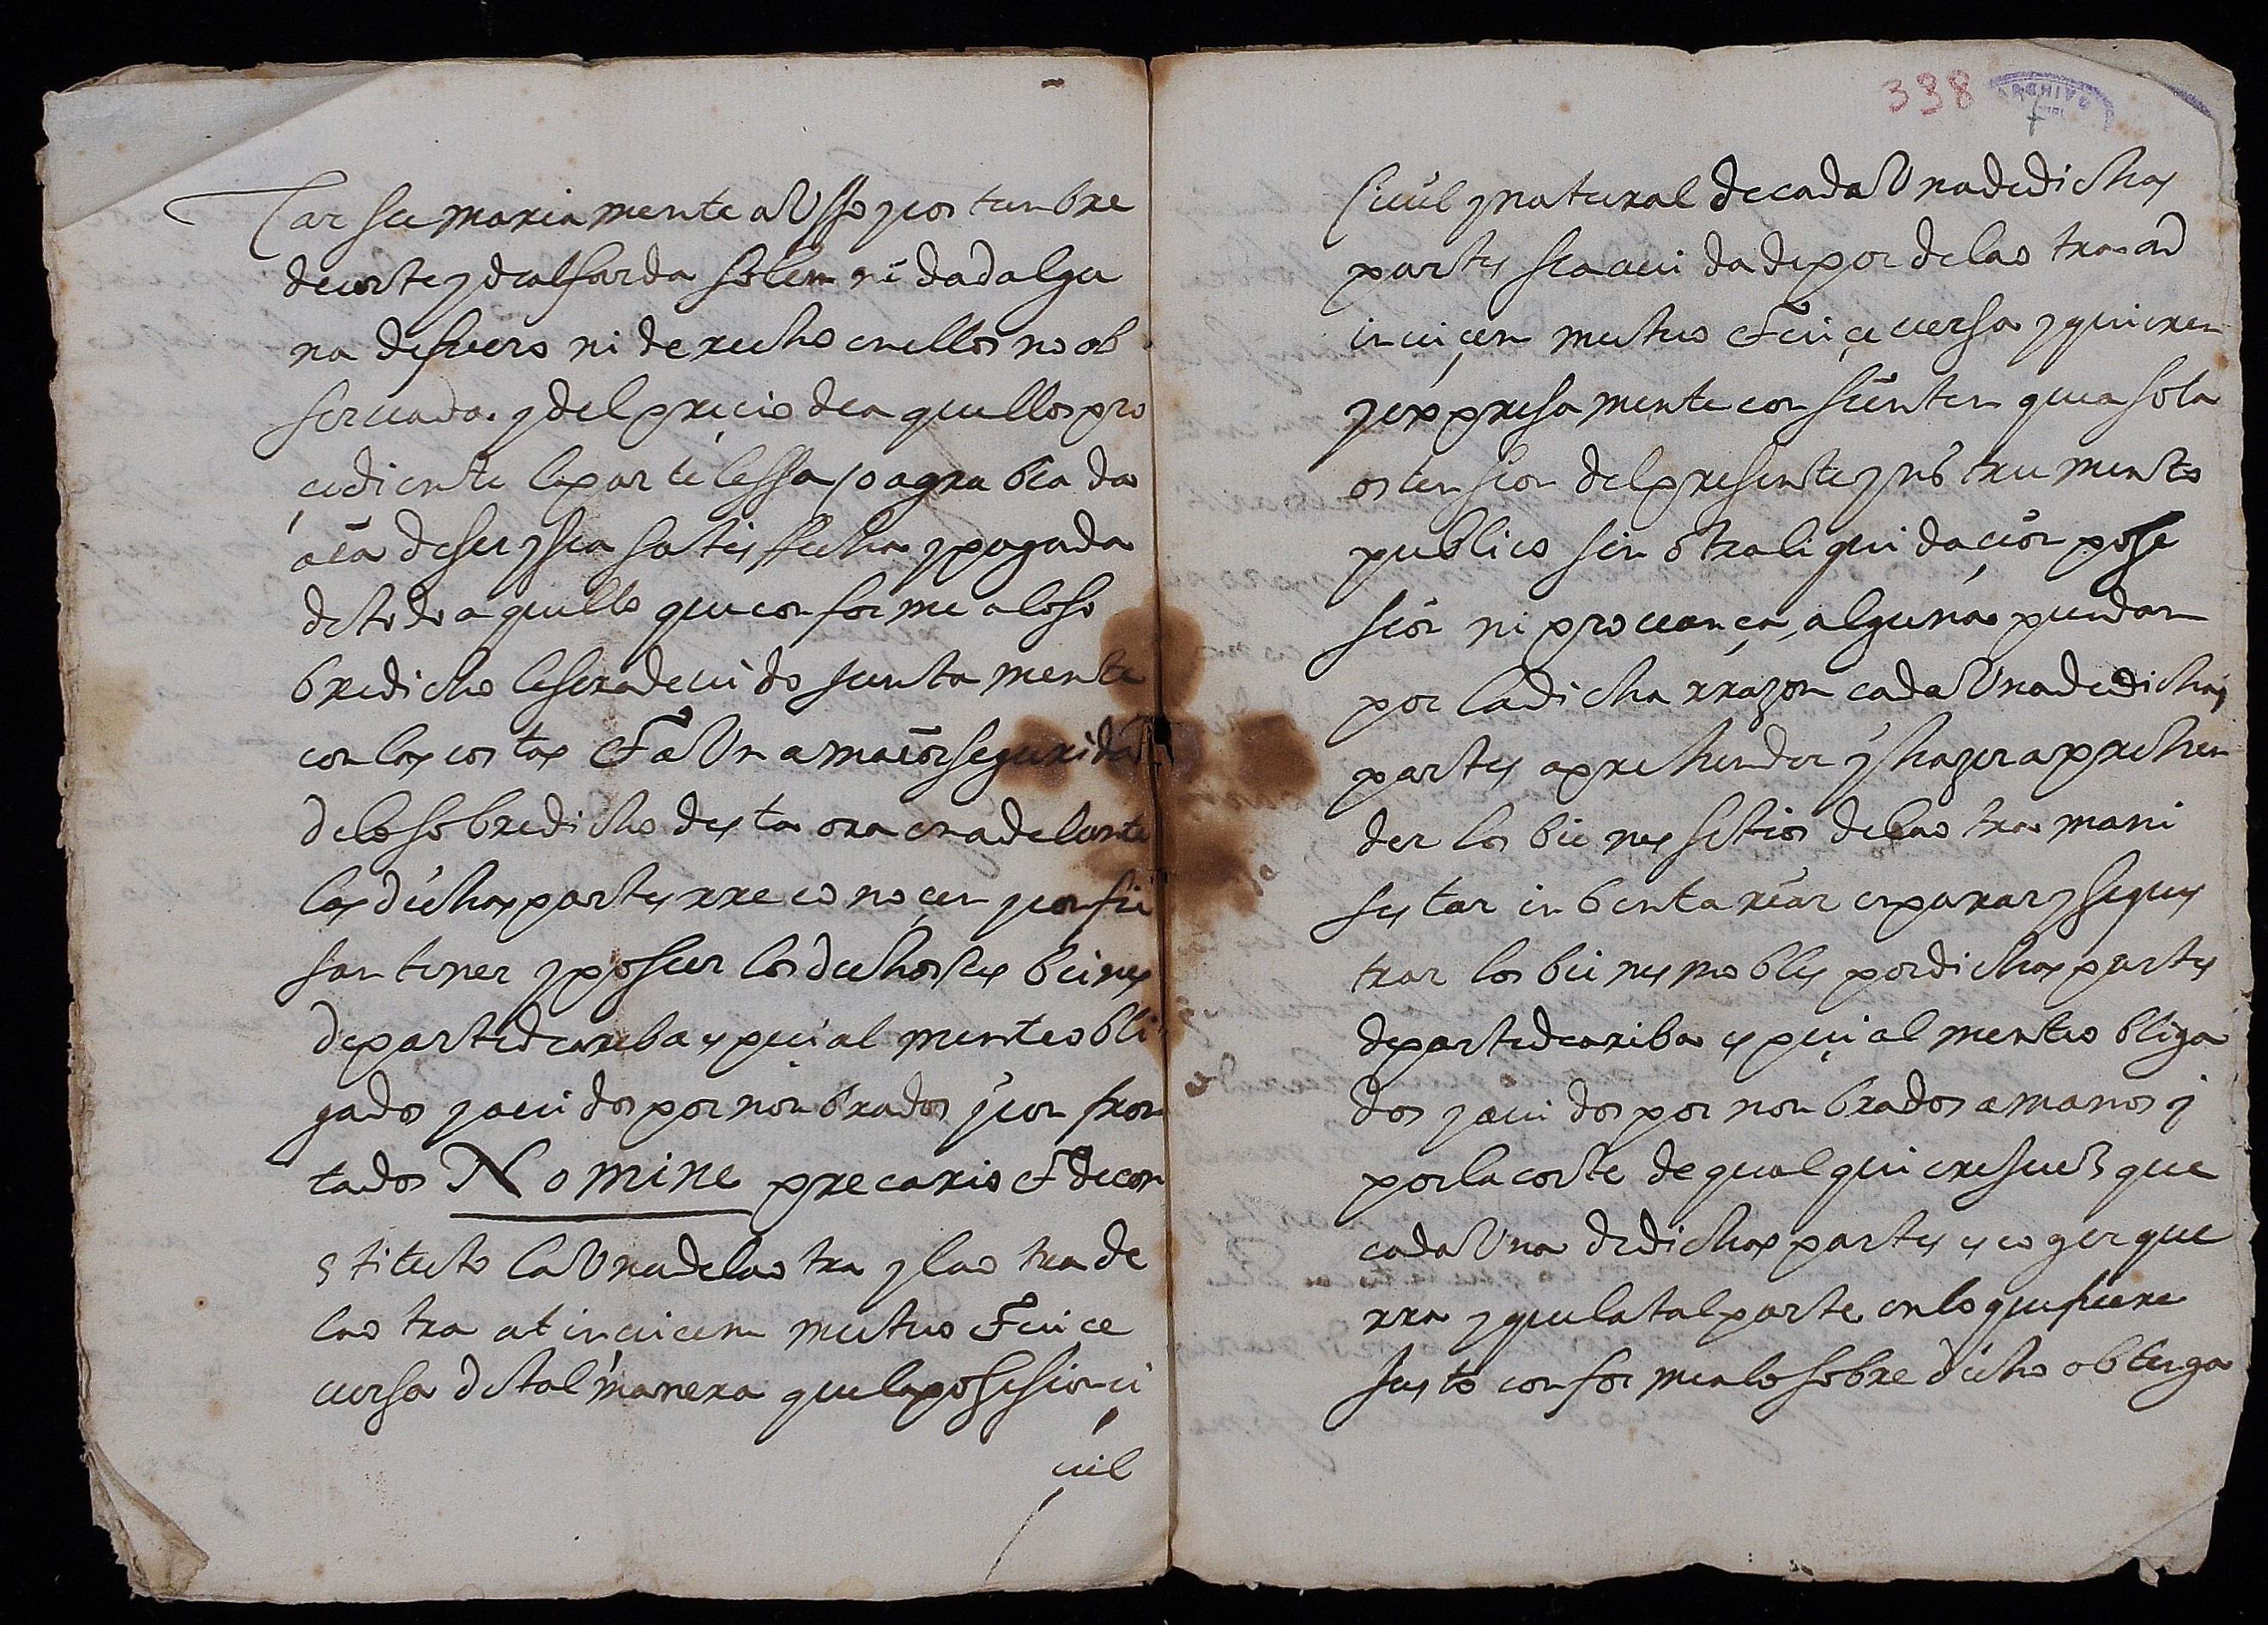 tar sumariamente a Usso y costunbre
de corte y de alfarda solemnidad algu
na de fuero ni derecho en ellos no ob
seruada. y del precio de aquellos pro
çediente la parte lessa y o agrabiada
aia de ser y sea satisffecha y pagada
de todo aquello que conforme a lo so
bredicho le sera deuido juntamente
con las costas Et a Una maior seguridad
de lo sobredicho desta ora en adelante
las dichas partes rreconoçen y confie
san tener y posseer los dichos sus bienes
de parte de arriba espeçialmente obli
gados y auidos por nonbrados y confron
tados Nomine precario Et de con
stituto la Una de la otra y la otra de
la otra at inuicem mutuo Et uice
uersa de tal manera que la posesion ci
uil
Ciuil y natural de cada Una de dichas
partes sea auida de por de la otra ad
inuiçem mutuo Et uiçe uersa y quieren
y expresamente consienten que a sola
ostension del presente ynstrumento
publico sin otra liquidaçion pose
sion ni prouança, alguna puedan
por la dicha rrazon cada Una de dichas
partes aprehender y hazer aprehen
der los bienes sitios de la otra mani
festar inbentariar enparar y seques
trar los bienes mobles por dichas partes
de parte de ariba espeçialmente obliga
dos y auidos por nonbrados a manos y
por la corte de qualquiere juez que
cada Una de dichas partes escoger que
rra y que la tal parte en lo que fuere
justo conforme a lo sobre dicho obtenga
398